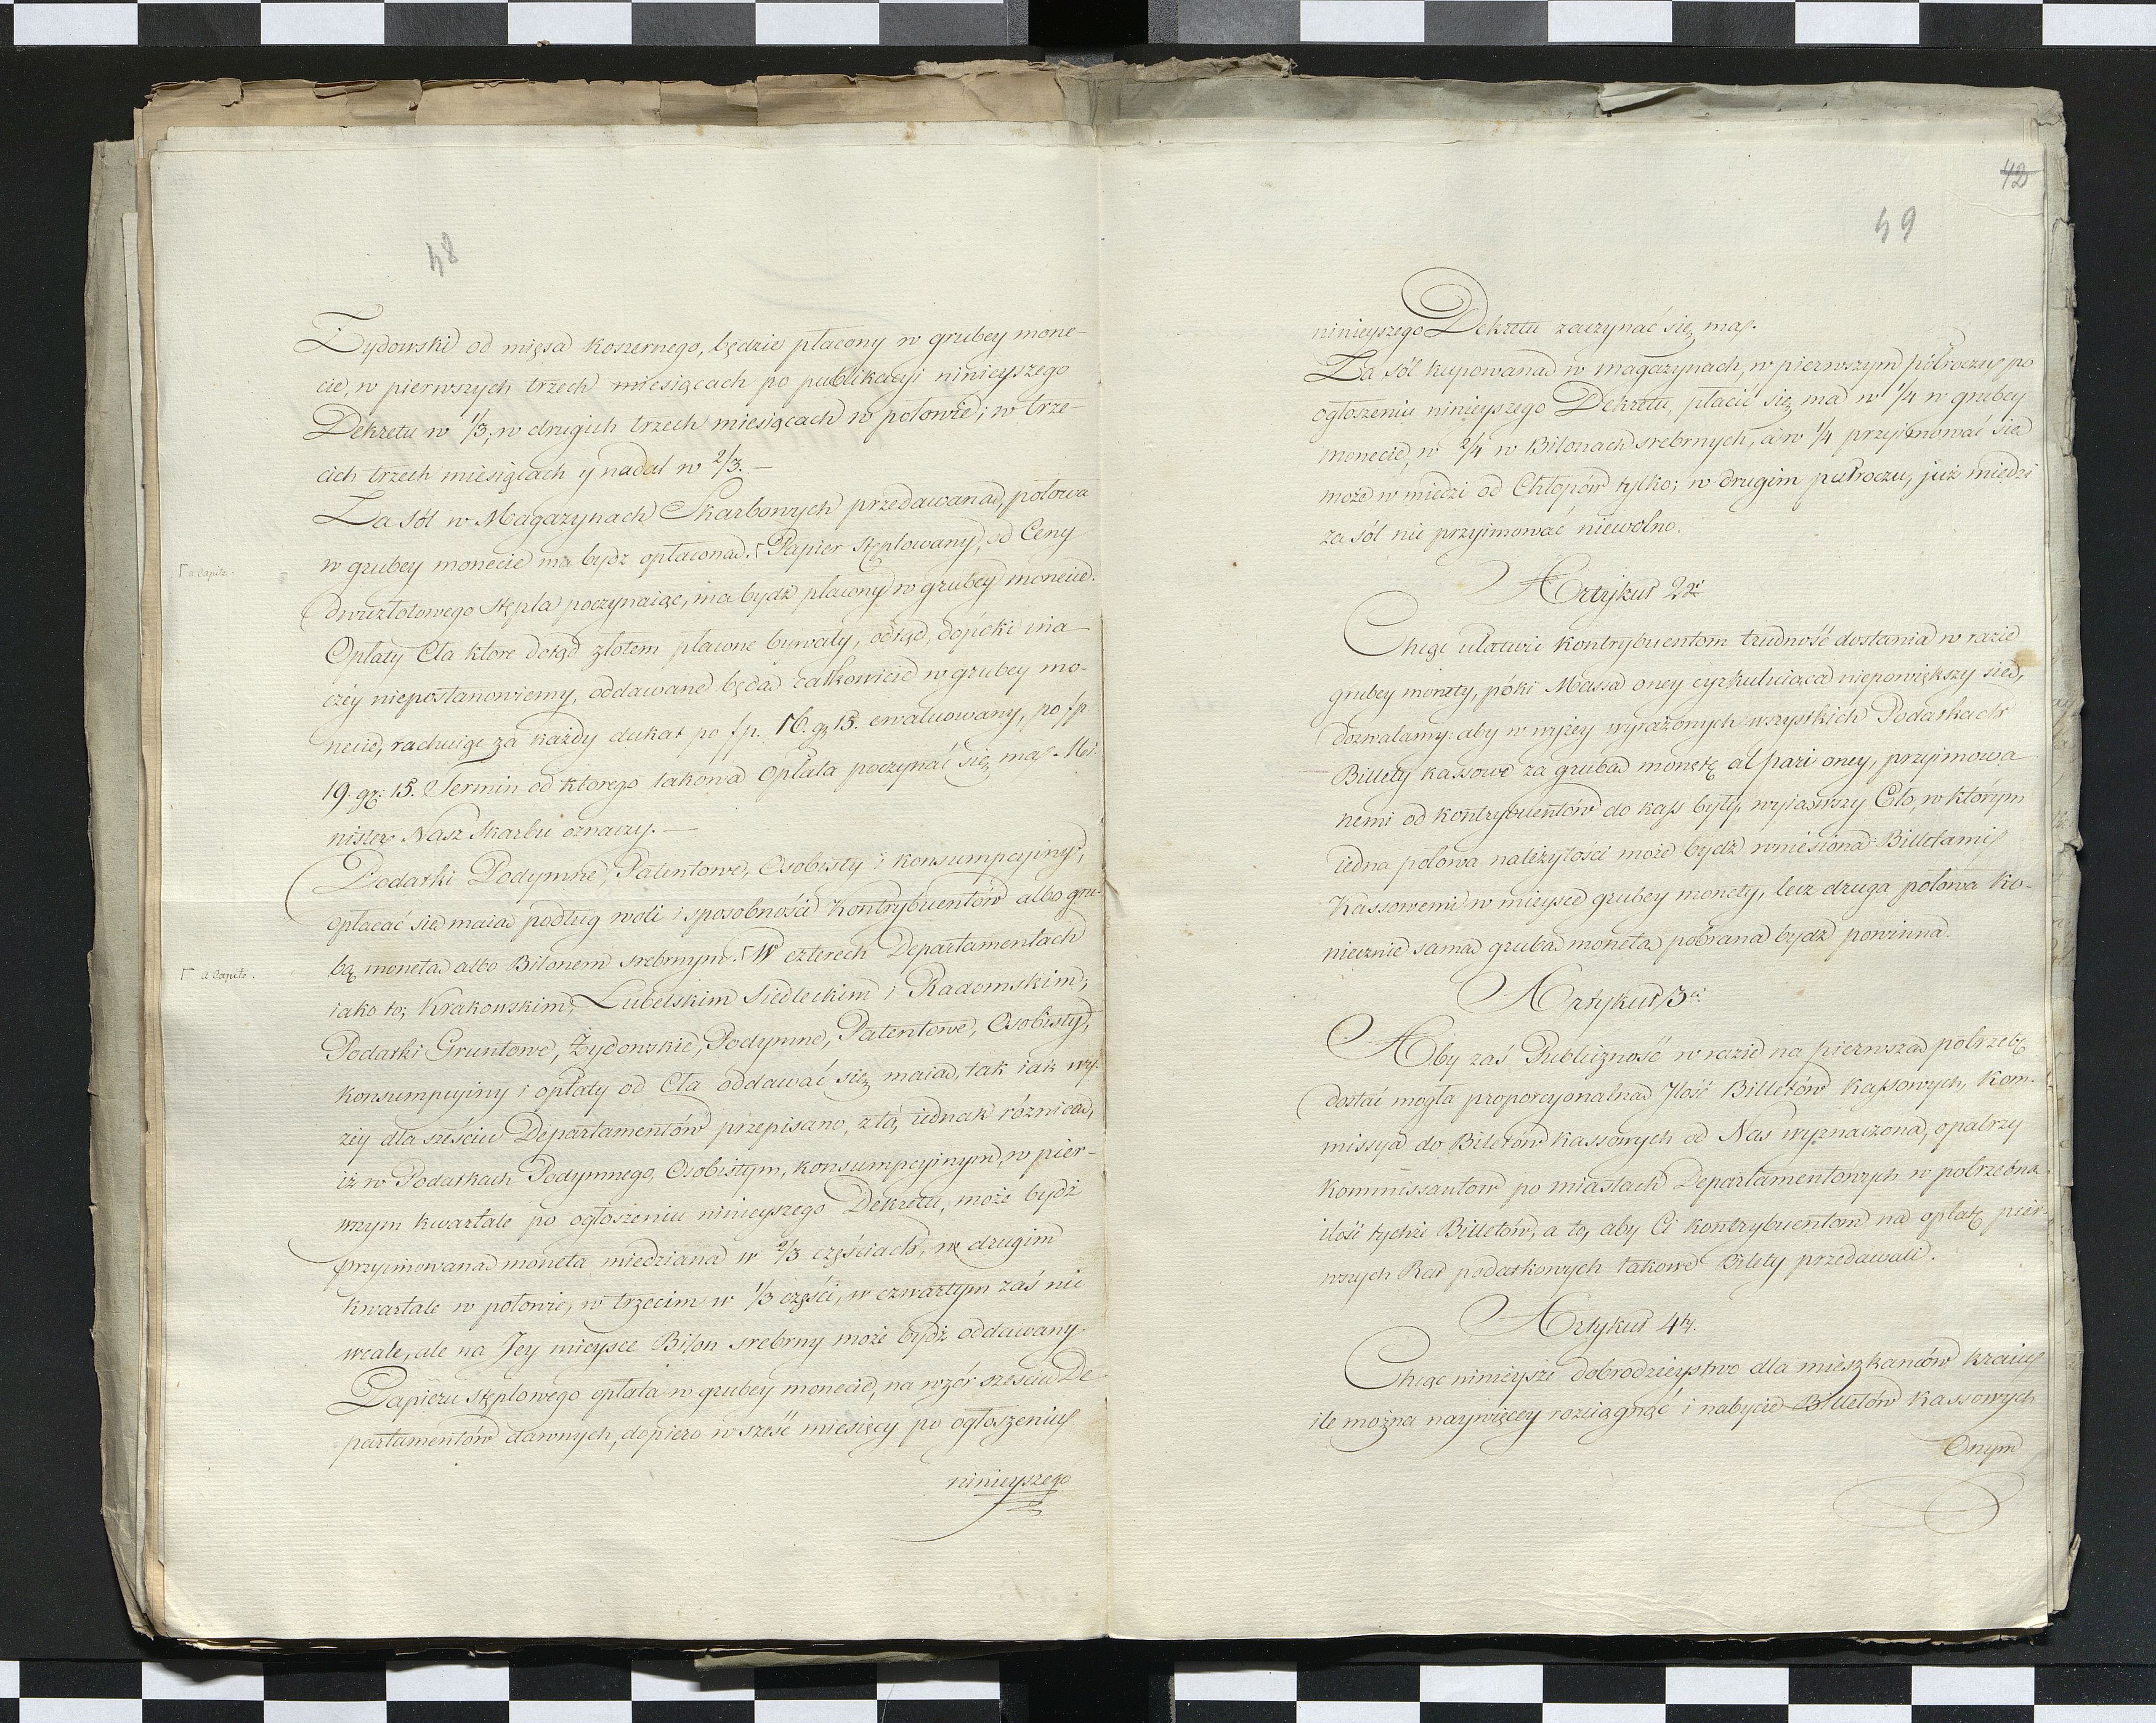 48
Żydowski od mięsa koszernego, będzie płacony w grubey mone-
cie, w pierwszych trzech miesiącach po publikacyi ninieyszego
Dekretu w 1/3, w drugich trzech miesiącach w połowie; w trze-
cich trzech miesiącach y nadal w 2/3. —
Za sól w Magazynach Skarbowych przedawaną, połowa
w grubey monecie ma bydz opłacona. Γ Papier stęplowany, od Ceny
Γ a Capite.
dwuzłotowego Stępla poczynaiąc, ma bydź płacony w grubey monecie.
Opłaty Cła które dotąd złotem płacone bywały, odtąd, dopóki ina-
czey niepostanowiemy, oddawane będą całkowicie w grubey mo-
necie, rachuiąc za każdy dukat po fp. 16. gr 15. ewaluowany, po fp
19. gr: 15. Termin od którego takowa Opłata poczynać się ma Mi-
nister Nasz Skarbu oznaczy. —
Podatki Podymne, Patentowe, Osobisty i konsumpcyiny,
opłacać się maią podług woli i sposobności Kontrybuentów albo gru-
bą monetą albo Bilonem srebrnym. Γ W czterech Departamentach
Γ a Capite.
iako to; Krakowskim, Lubelskim Siedleckim i Radomskim,
Podatki Gruntowe, Żydowskie, Podymne, Patentowe, Osobisty,
konsumpcyiny i opłaty od Cła oddawać się maią, tak iak wy-
żey dla sześciu Departamentów przepisano, z tą iednak różnicą,
iż w Podatkach Podymnego, Osobistym, konsumpcyinym, w pier-
wszym kwartale po ogłoszeniu ninieyszego Dekretu, może bydź
przyimowana moneta miedziana w 2/3 częściach, w drugim
kwartale w połowie, w trzecim w 1/3 części, w czwartym zaś nie
wcale, ale na Jey mieysce Bilon srebrny może bydź oddawany.
Papieru stęplowego opłata w grubey monecie, na wzór sześciu De-
partamentów dawnych, dopiero w sześć miesięcy po ogłoszeniu
ninieyszego
42
49
ninieyszego Dekretu zaczynać się ma.
Za sól kupowaną w magazynach, w pierwszym półroczu po
ogłoszeniu ninieyszego Dekretu, płacić się ma w 1/4 w grubey
monecie, w 2/4 w Bilonach srebrnych, a w 1/4 przyimować się
może w miedzi od Chłopów tylko; w drugim półroczu, już miedzi
za sól nie przyimować niewolno.
Artykuł 2gi
Chcąc ułatwić kontrybuentom trudność dostania w razie
grubey monety, póki Massa oney cyrkuluiąca niepowiększy się,
dozwalamy: aby w wyżey wyrażonych wszystkich Podatkach
Billety kassowe za grubą monetę al pari oney, przyimowa
nemi od kontrybuentów do kass były, wyiąwszy Cło, w którym
iedna połowa należytości może bydź wniesiona Billetami
Kassowemi w mieysce grubey monety, lecz druga połowa ko-
niecznie samą grubą monetą pobrana bydź powinna.
Artykuł 3ci
Aby zaś Publiczność w razie na pierwszą potrzebę
dostać mogła proporcyonalną Jlość Billetów Kassowych, Kom-
missya do Biletów Kassowych od Nas wyznaczona, opatrzy
Kommissantów po miastach Departamentowych w potrzebną
ilość tychże Billetów, a to, aby Ci kontrybuentom na opłatę pier-
wszych Rat podatkowych takowe Bilety przedawali.
Artykuł 4ty.
Chcąc ninieysze dobrodzieystwo dla mieszkanców kraiu
ile można naywięcey rozciągnąć i nabycie Billetów Kassowych
Onym